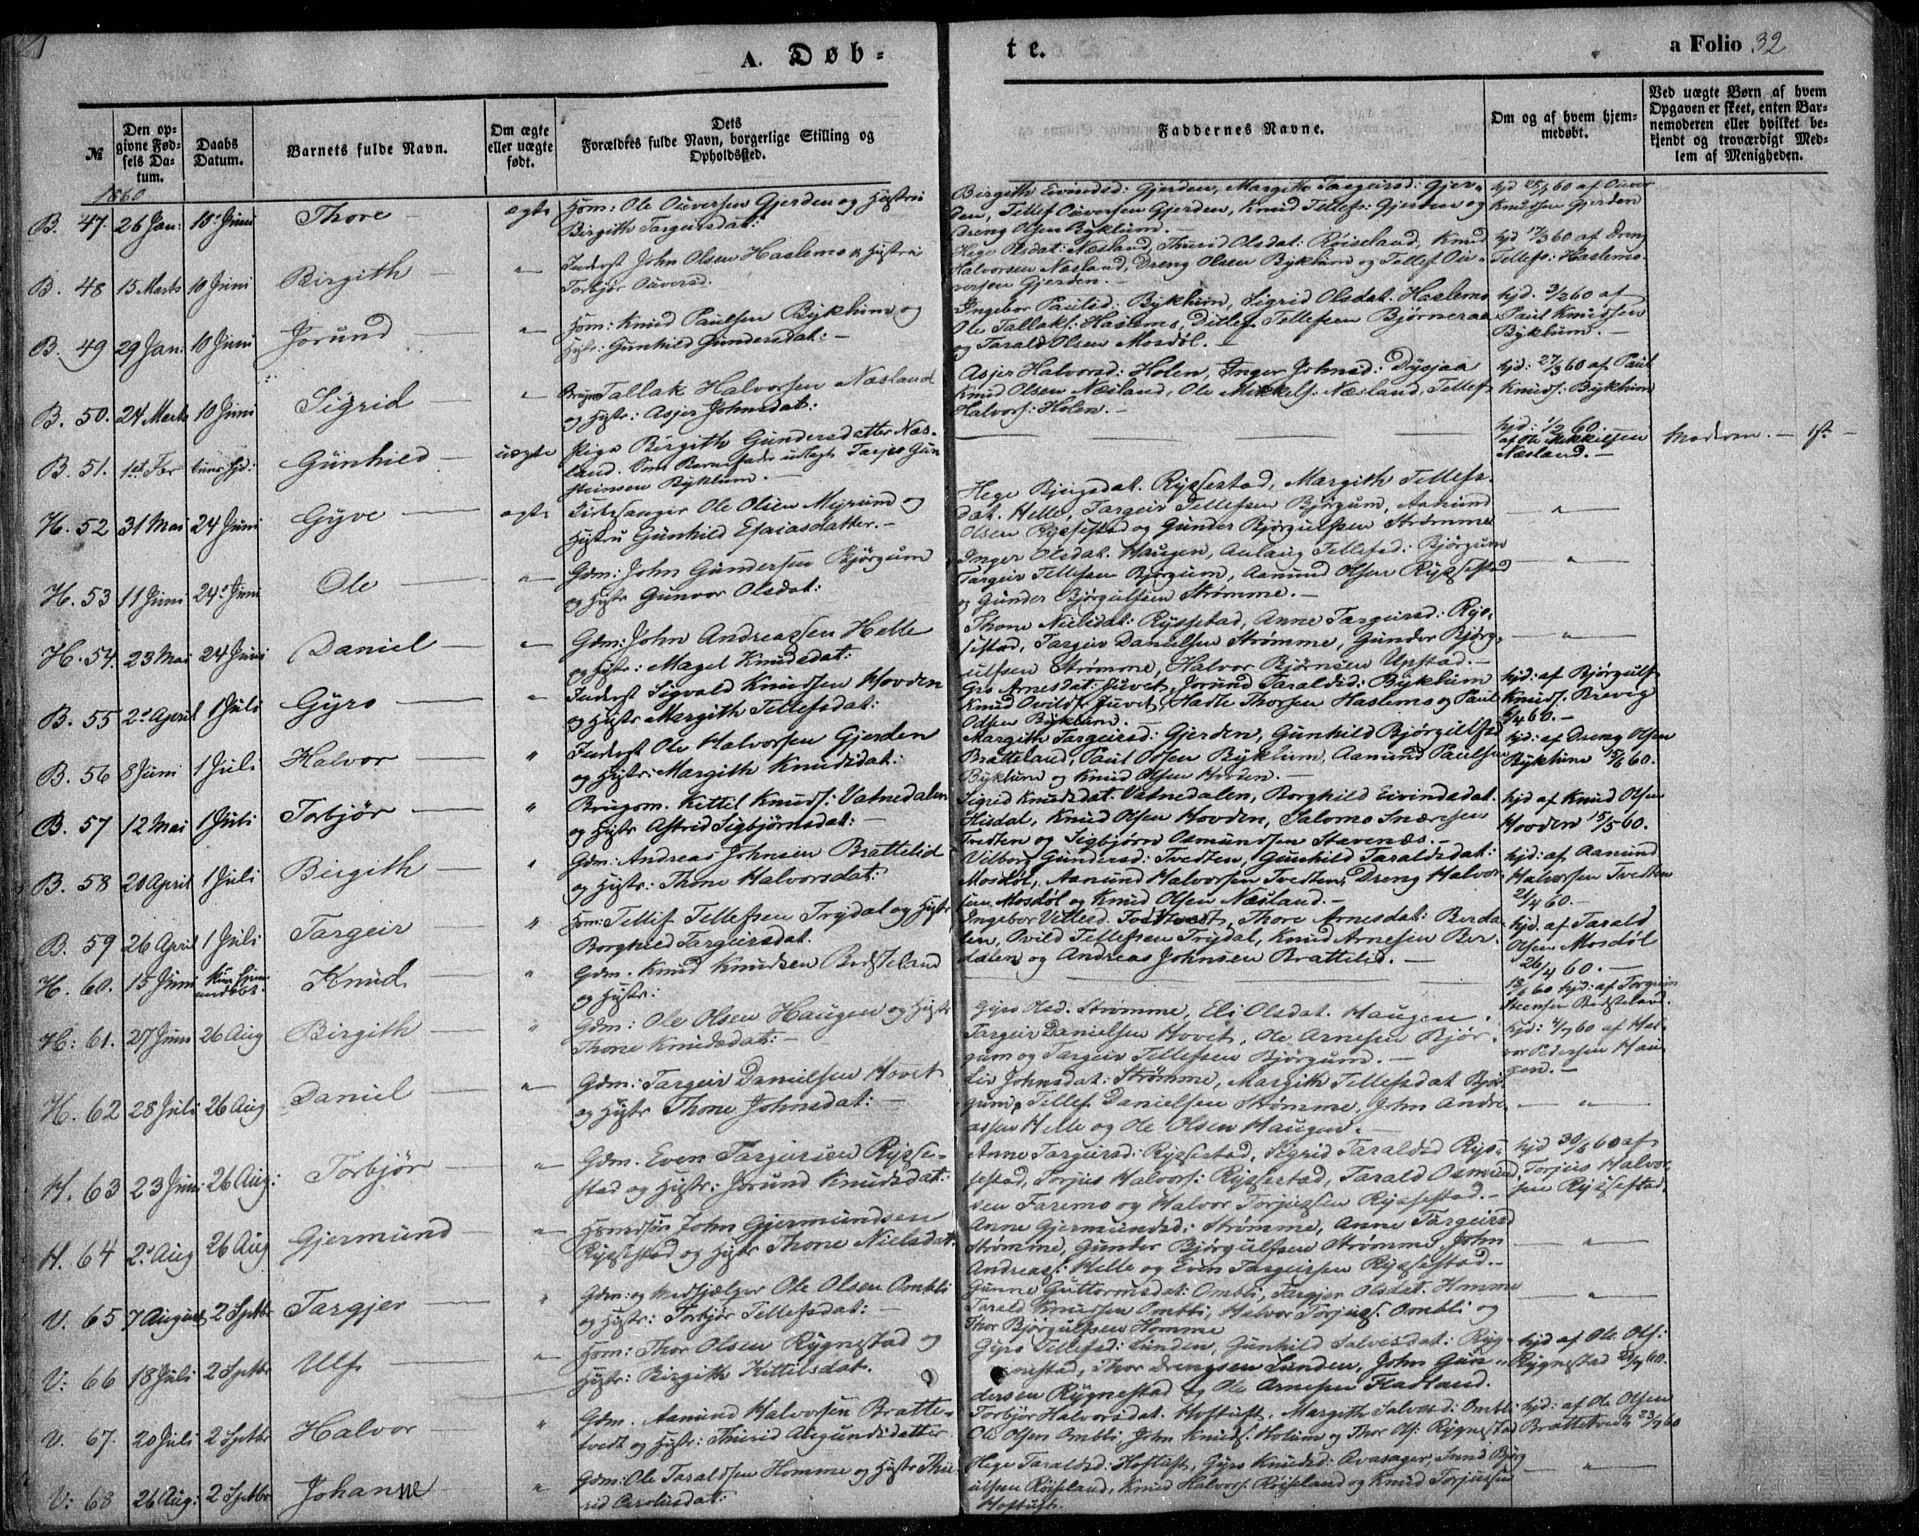 A. Døb-
te.
a Folio 32
№
Den opgivne Fødsels Datum.
Daabs Datum.
Barnets fulde Navn.
Om ægte eller uægte født.
Dets Forældres fulde Navn, borgerlige Stilling og Opholdssted.
Faddernes Navne.
Om og af hvem hjemmedøbt.
Ved uægte Børn af hvem Opgaven er skeet, enten Barnemoderen eller hvilket bekjendt og troværdigt Medlem af Menigheden.
1860
B. 47. 26 Jan: 10de Juni Thore ægte Hom: Ole Ouversen Gjerden og Hustru
Birgith Targeirsdat:
Birgith Eivindsd: Gjerden, Margith Targeirsd: Gjer-
den, Tellef Ouversen Gjerden, Knud Tellefs: Gjerden og
Dreng Olsen Byklum.
hjd 28/1 60 af Ouver
Knudsen Gjerden
B. 48 15 Marts 10 Juni Birgith " Inderst John Olsen Haslemo & Hustru
Torbjør Ouversd.
Hege Olsdat: Næsland, Thurid Olsdat: Røiseland, Knud
Halvorsen Næsland, Dreng Olsen Byklum og Tellef Ou-
versen Gjerden.
hjd 17/3 60 af Dreng
Tellefs: Haslemo
B. 49 29 Jan: 10 Juni Jorund " Hom: Knud Paulsen Byklum og
Hustr: Gunhild Gundersdat:
Ingebor Paulsd: Byklum, Sigrid Olsdat. Haslemo
Ole Tallaks: Haslemo, Ditlef Tellefsen Bjørneraa
og Tarald Olsen Mosdøl.
hjd: 3/2 60 af
Paul Knudsen
Byklum.
B. 50. 24 Marts 10 Juni Sigrid " Brugm Tallak Halvorsen Næsland
og Hustr: Asjer Johnsdat:
Asjer Halvorsd: Holen, Inger Johnsd: Dysjaa
Knud Olsen Næsland, Ole Mikkels: Næsland, Tellef
Halvors: Holen.
hjd: 27/3 60 af Paul
Knuds: Byklum
B. 51. 1ste Febr Gunhild uægte Pige Birgith Gundersdatter Næs-
land. Som Barnefader udlagt Tarjei Gun
steinsen Byklum.
hjd: 1/2 60.
af Ole Mikkelsen
Næsland.
Moderen. 1ste
H. 52 31 Mai 24 Juni Gyve ægte Kirkesanger Ole Olsen Myrum og
Hustru Gunhild Esaiasdatter.
Hege Bjugsdat. Ryssestad, Margith Tellefs-
dat. Helle, Targeir Tellefsen Bjørgum, Aamund
Olsen Ryssestad og Gunder Bjørgulfsen Strømme
"
H. 53 11 Juni 24de Juni Ole " Gdm: John Gundersen Bjørgum
og Hustr Gunvor Olsdat:
Inger Olsdat. Haugen, Aslaug Tellefsd: Bjørgum
Targeir Tellefsen Bjørgum, Aamund Olsen Ryssestad
og Gunder Bjørgulfsen Strømme.
"
H. 54. 23 Mai 24 Juni Daniel " Gdm: John Andreassen Helle
og Hustr: Magel Knudsdat:
Thone Nielsdat: Ryssestad, Anne Targeirsd: Rys-
sestad, Targeir Danielsen Strømme, Gunder Bjørg-
ulfsen Strømme, Halvor Bjørnsen Upstad.
"
B. 55 2de April 1 Juli Gyro " Inderst Sigvald Knudsen Hovden
og Hustr Margith Tellefsdat:
Gro Arnesdat: Juvet, Jorund Taraldsd: Byklum
Knud Ovilds: Juvet, Hadle Thorsen Haslemo og Paul
Odsen Byklum.
hjd: af Bjørgulf
Knuds: Breivig
5/4 60.
B. 56 8 Juni 1 Juli Halvor " Inderst Ole Halvorsen Gjerden
og Hustr: Margith Knudsdat:
Margith Targeirsd: Gjerden, Gunhild Bjørgulfsd
Bratteland, Paul Odsen Byklum, Aamund Paulsen
Byklum og Knud Olsen Hovden.
hjd: af Dreng Olsen
Byklum 15/6 60.
B. 57 12 Mai 1 Juli Torbjør " Brugsm. Kittil Knuds: Vatnedalen
og Hustr Astrid Sigbjørnsdat:
Sigrid Knudsdat. Vatnedalen, Borghild Eivindsdat.
Hisdal, Knud Olsen Hovden, Salomo Snæresen
Tvedten og Sigbjørn Osmundsen Stavenæs.
hjd af Knud Olsen
Hovden 15/5 60.
B. 58 20 April 1 Juli Birgith " Gdm: Andreas Johnsen Brattelid
og Hustr: Thone Halvorsdat:
Vilborg Gundersd: Tvedten, Gunhild Taraldsdat:
Mosdøl, Aanund Halvorsen Tvedten, Dreng Halvor-
sen Mosdøl og Knud Olsen Næsland.
hjd: af Aanund
Halvorsen Tvedten
21/4 60.
B. 59 26 April 1 Juli Targeir " Hom: Tellef Tellefsen Trydal og Hustr
Borghild Targeirsdat.
Thore Arnesdat: Berda-
len, Ovild Tellefsen Trydal, Knud Arnesen Ber-
dalen og Andreas Johnsen Brattelid.
hjd. af Tarald
Olsen Mosdøl
26/4 60.
H. 60. 15 Juni Kun hjemmedøbt. Knud " Gdm. Knud Knudsen
og Hustr:
18/6 60 hjd: af Torgrim
H: 61. 27 Juni 26 Aug Birgith " Gdm: Ole Olsen Haugen og Hustr
Thone Knudsdat:
Gyro Olsd. Strømme, Eli Olsdat. Haugen
Targeir Danielsen Hovet, Ole Arnesen Bjør-
gum og Targeir Tellefsen Bjørgum.
hjd: 4/7 60 af Hal-
vor Pedersen Hau-
gen.
H. 62 28 Juli 26 Aug Daniel " Gdm: Targeir Danielsen Hovet
og Hustr Thone Johnsdat:
Liv Johnsdat: Strømme, Margith Tellefsdat Bjør
gum, Tellef Danielsen Strømme, John Andre-
assen Helle og Ole Olsen Haugen.
"
H. 63 23 Juni 26 Aug: Torbjør " Gdm. Even Targeirsen Rysse-
stad og Hustr: Jorund Knudsdat:
Anne Targeirsd: Ryssestad, Sigrid Taraldsd Rys-
sestad, Torjus Halvors: Ryssestad, Tarald Osmund-
sen Faremo og Halvor Torjussen Ryssestad.
hjd 30/6 60 af
Torjus Halvor-
sen Ryssestad.
H. 64 2de Aug 26 Aug Gjermund " Huusmd John Gjermundsen
Ryssestad og Hustr Thone Nielsdat:
Anne Gjermundsd: Strømme, Anne Targeirsd
Strømme, Gunder Bjørgulfsen Strømme, John
Andreas: Helle og Even Targeirsen Ryssestad.
"
V. 65 7 August 2 Septbr Targjer " Gdm: og Medhjælper Ole Olsen Ombli
og Hustr: Torbjør Tellefsdat:
Gunne Guttormsdat: Ombli, Targjer Olsdat. Homme
Tarald Knudsen Ombli, Halvor Torjus. Ombli og
Thor Bjørgulfsen Homme
"
V: 66 18 Juli 2 Septbr Ulf " Hom: Thor Olsen Rygnestad og
Hustr: Birgith Kittilsdat.
Gyro Tellefsd: Lunden, Gunhild Salvesdat: Ryg-
nestad, Thor Drengsen Lunden, John Gun-
dersen Rygnestad og Ole Arnesen Flatland.
hjd af Ole Ols:
Rygnestad 21/7 60.
V. 67. 20 Juli 2 Septbr Halvor " Gdm. Aamund Halvorsen Bratte-
tvedt og Hustr: Thurid Asgundsdatter
Torbjør Halvorsdat. Hoftuft, Margith Salvesd: Ombli
Ole Olsen Ombli, John Knuds. Holum og Thor Ols: Rygnestad
hjd: af Ole Olsen
Brattetvedt 23/7 60
V: 68 26 Aug: 2 Septbr Johanne " Gdm: Ole Taraldsen Homme og Hustr Thu-
rid Carolusdat:
Hege Taraldsd: Hoftuft, Gyro Knudsd: Kvasager, Svend Bjørg
ulfsen Røiseland, Knud Halvors. Røiseland og Knud Torjussen
Hoftuft.
"